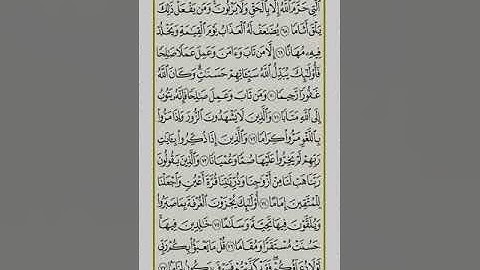 ٱلَّتِي حَرَّمَ ٱللَّهُ إِلَّا بِٱلْحَقِّ وَلَا يَزْنُونَۚ وَمَن يَفْعَلْ ذَٰلِكَ
يَلْقَ أَثَامًا ٦٨ يُضَٰعَفْ لَهُ ٱلْعَذَابُ يَوْمَ ٱلْقِيَٰمَةِ وَيَخْلُدْ
فِيهِۦ مُهَانًا ٦٩ إِلَّا مَن تَابَ وَءَامَنَ وَعَمِلَ عَمَلًا صَٰلِحًا
فَأُوْلَٰٓئِكَ يُبَدِّلُ ٱللَّهُ سَيِّـَٔاتِهِمْ حَسَنَٰتٍۗ وَكَانَ ٱللَّهُ
غَفُورًا رَّحِيمًا ٧٠ وَمَن تَابَ وَعَمِلَ صَٰلِحًا فَإِنَّهُۥ يَتُوبُ
إِلَى ٱللَّهِ مَتَابًا ٧١ وَٱلَّذِينَ لَا يَشْهَدُونَ ٱلزُّورَ وَإِذَا مَرُّواْ
بِٱللَّغْوِ مَرُّواْ كِرَامًا ٧٢ وَٱلَّذِينَ إِذَا ذُكِّرُواْ بِـَٔايَٰتِ
رَبِّهِمْ لَمْ يَخِرُّواْ عَلَيْهَا صُمًّا وَعُمْيَانًا ٧٣ وَٱلَّذِينَ يَقُولُونَ
رَبَّنَا هَبْ لَنَا مِنْ أَزْوَٰجِنَا وَذُرِّيَّٰتِنَا قُرَّةَ أَعْيُنٍ وَٱجْعَلْنَا
لِلْمُتَّقِينَ إِمَامًا ٧٤ أُوْلَٰٓئِكَ يُجْزَوْنَ ٱلْغُرْفَةَ بِمَا صَبَرُواْ
وَيُلَقَّوْنَ فِيهَا تَحِيَّةً وَسَلَٰمًا ٧٥ خَٰلِدِينَ فِيهَاۚ
حَسُنَتْ مُسْتَقَرًّا وَمُقَامًا ٧٦ قُلْ مَا يَعْبَؤُاْ بِكُمْ رَبِّي
لَوْلَا دُعَآؤُكُمْۖ فَقَدْ كَذَّبْتُمْ فَسَوْفَ يَكُونُ لِزَامًا ٧٧